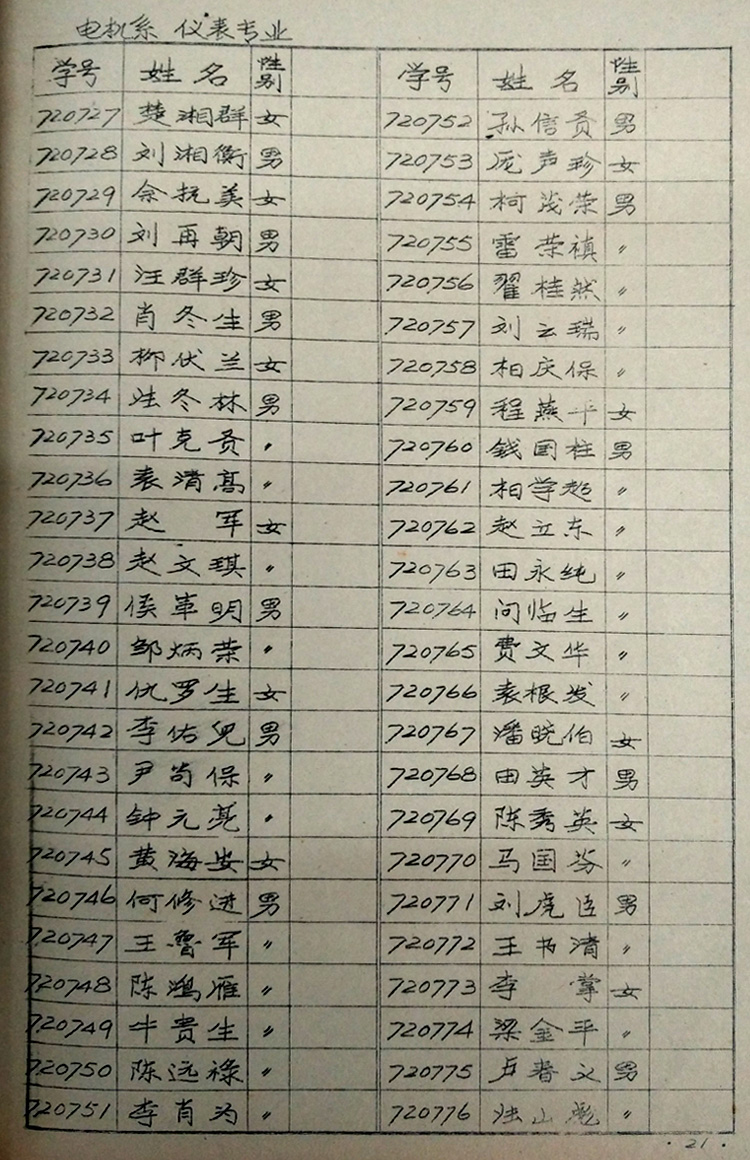 电机系 仪表专业
学号 姓名 性别
720727 楚湘群 女
720728 刘湘衡 男
720729 佘抗美 女
720730 刘再朝 男
720731 汪群珍 女
720732 肖冬生 男
720733 柳伏兰 女
720734 冬林 男
720735 叶克贵 〃
720736 袁清高 〃
720737 赵军 女
720738 赵文琪 〃
720739 侯革明 男
720740 邹炳荣 〃
720741 仇罗生 女
720742 李佑 男
720743 尹苟保 〃
720744 钟元亮 〃
720745 黄海安 女
720746 何修进 男
720747 王鲁军 〃
720748 陈鸿雁 〃
720749 牛贵生 〃
720750 陈远禄 〃
720751 李肖为 〃
学号 姓名 性别
720752 孙信贵 男
720753 庞声珍 女
720754 柯茂荣 男
720755 雷荣禛 〃
720756 翟桂然 〃
720757 刘云瑞 〃
720758 柏庆保 〃
720759 程燕平 女
720760 钱国柱 男
720761 柏学超 〃
720762 赵立东 〃
720763 田永纯 〃
720764 问临生 〃
720765 费文华 〃
720766 袁根发 〃
720767 潘晓伯 女
720768 田英才 男
720769 陈秀英 女
720770 马国芬 〃
720771 刘虎臣 男
720772 王书清 〃
720773 李掌 女
720774 梁金平 〃
720775 卢春义 男
720776 山彪 〃
· 21 ·